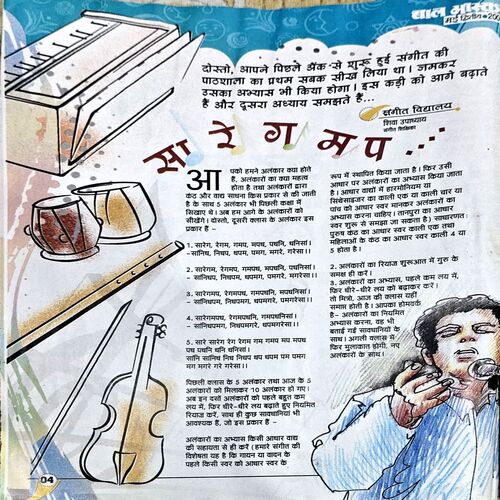 बाल भास्कर
दोस्तो, आपने पिछले अंक से शुरू हुई संगीत की
पाठशाला का प्रथम सबक सीख लिया था। जमकर
उसका अभ्यास भी किया होगा। इस कड़ी को आगे बढ़ाते
हैं और दूसरा अध्याय समझते हैं...
संगीत विद्यालय
शिवा उपाध्याय
संगीत शिक्षिका
सा रे ग म प ...
आपको हमने अलंकार क्या होते
हैं, अलंकारों का क्या महत्व
होता है तथा अलंकारों द्वारा
कंठ और वाद्य साधना किस प्रकार से की जाती
है के साथ 5 अलंकार भी पिछली कक्षा में
सिखाए थे। अब हम आगे के अलंकारों को
सीखेंगे। दोस्तो, दूसरी क्लास के अलंकार इस
प्रकार हैं -
1. सारेग, रेगम, गमप, मपध, पधनि, धनिसां।
- सांनिध, निधप, धपम, पमग, मगरे, गरेसा।।
2. सारेसारेग, रेगरेगम, गमगमप, मपमपध,
पधपधनि, धनिधनिसां।
3. सारेगमप, रेगमपध, गमपधनि, मपधनिसां।
- सांनिधपम, निधपमग, धपमगरे, पमगरेसा।।
4. सारेगमपध, रेगमपधनि, गमपधनिसां।
- सांनिधपमग, निधपमगरे, धपमगरेसा।।
5. सारे सारेग रेग रेगम गम गमप मप मपध
पध पधनि धनि धनिसां।
सांनि सांनिध निध निधप धप धपम पम पमग
मग मगरे गरे गरेसा।।
पिछली क्लास के 5 अलंकार तथा आज के 5
अलंकारों को मिलाकर 10 अलंकार हो गए।
अब इन दसों अलंकारों को पहले बहुत कम
लय में, फिर धीरे-धीरे लय बढ़ाते हुए नियमित
रियाज करें, साथ ही कुछ सावधानियां भी
आवश्यक हैं, जो इस प्रकार हैं -
अलंकारों का अभ्यास किसी आधार वाद्य
की सहायता से ही करें (हमारे संगीत की
विशेषता यह है कि गायन या वादन के
पहले किसी स्वर को आधार स्वर के
रूप में स्थापित किया जाता है। फिर उसी
आधार पर अलंकारों का अभ्यास किया जाता
है। आधार वाद्यों में हारमोनियम या
सिंथेसाइजर का काली एक या काली चार या
पांच को आधार स्वर मानकर अलंकारों का
अभ्यास करना चाहिए। तानपुरा का आधार
स्वर शुरू से समझा जा सकता है) साधारणत:
पुरुष कंठ का आधार स्वर काली एक तथा
महिलाओं के कंठ का आधार स्वर काली 4 या
5 होता है।
2. अलंकारों का रियाज शुरूआत में गुरु के
समक्ष ही करें।
3. अलंकारों का अभ्यास, पहले कम लय में,
फिर धीरे-धीरे लय को बढ़ाकर करें।
तो मित्रो, आज की क्लास यहीं
समाप्त होती है। आपका होमवर्क
है- अलंकारों का नियमित
अभ्यास करना, वह भी
बताई गई सावधानियों के
साथ। अगली क्लास में
फिर मुलाकात होगी, नए
अलंकारों के साथ।
04